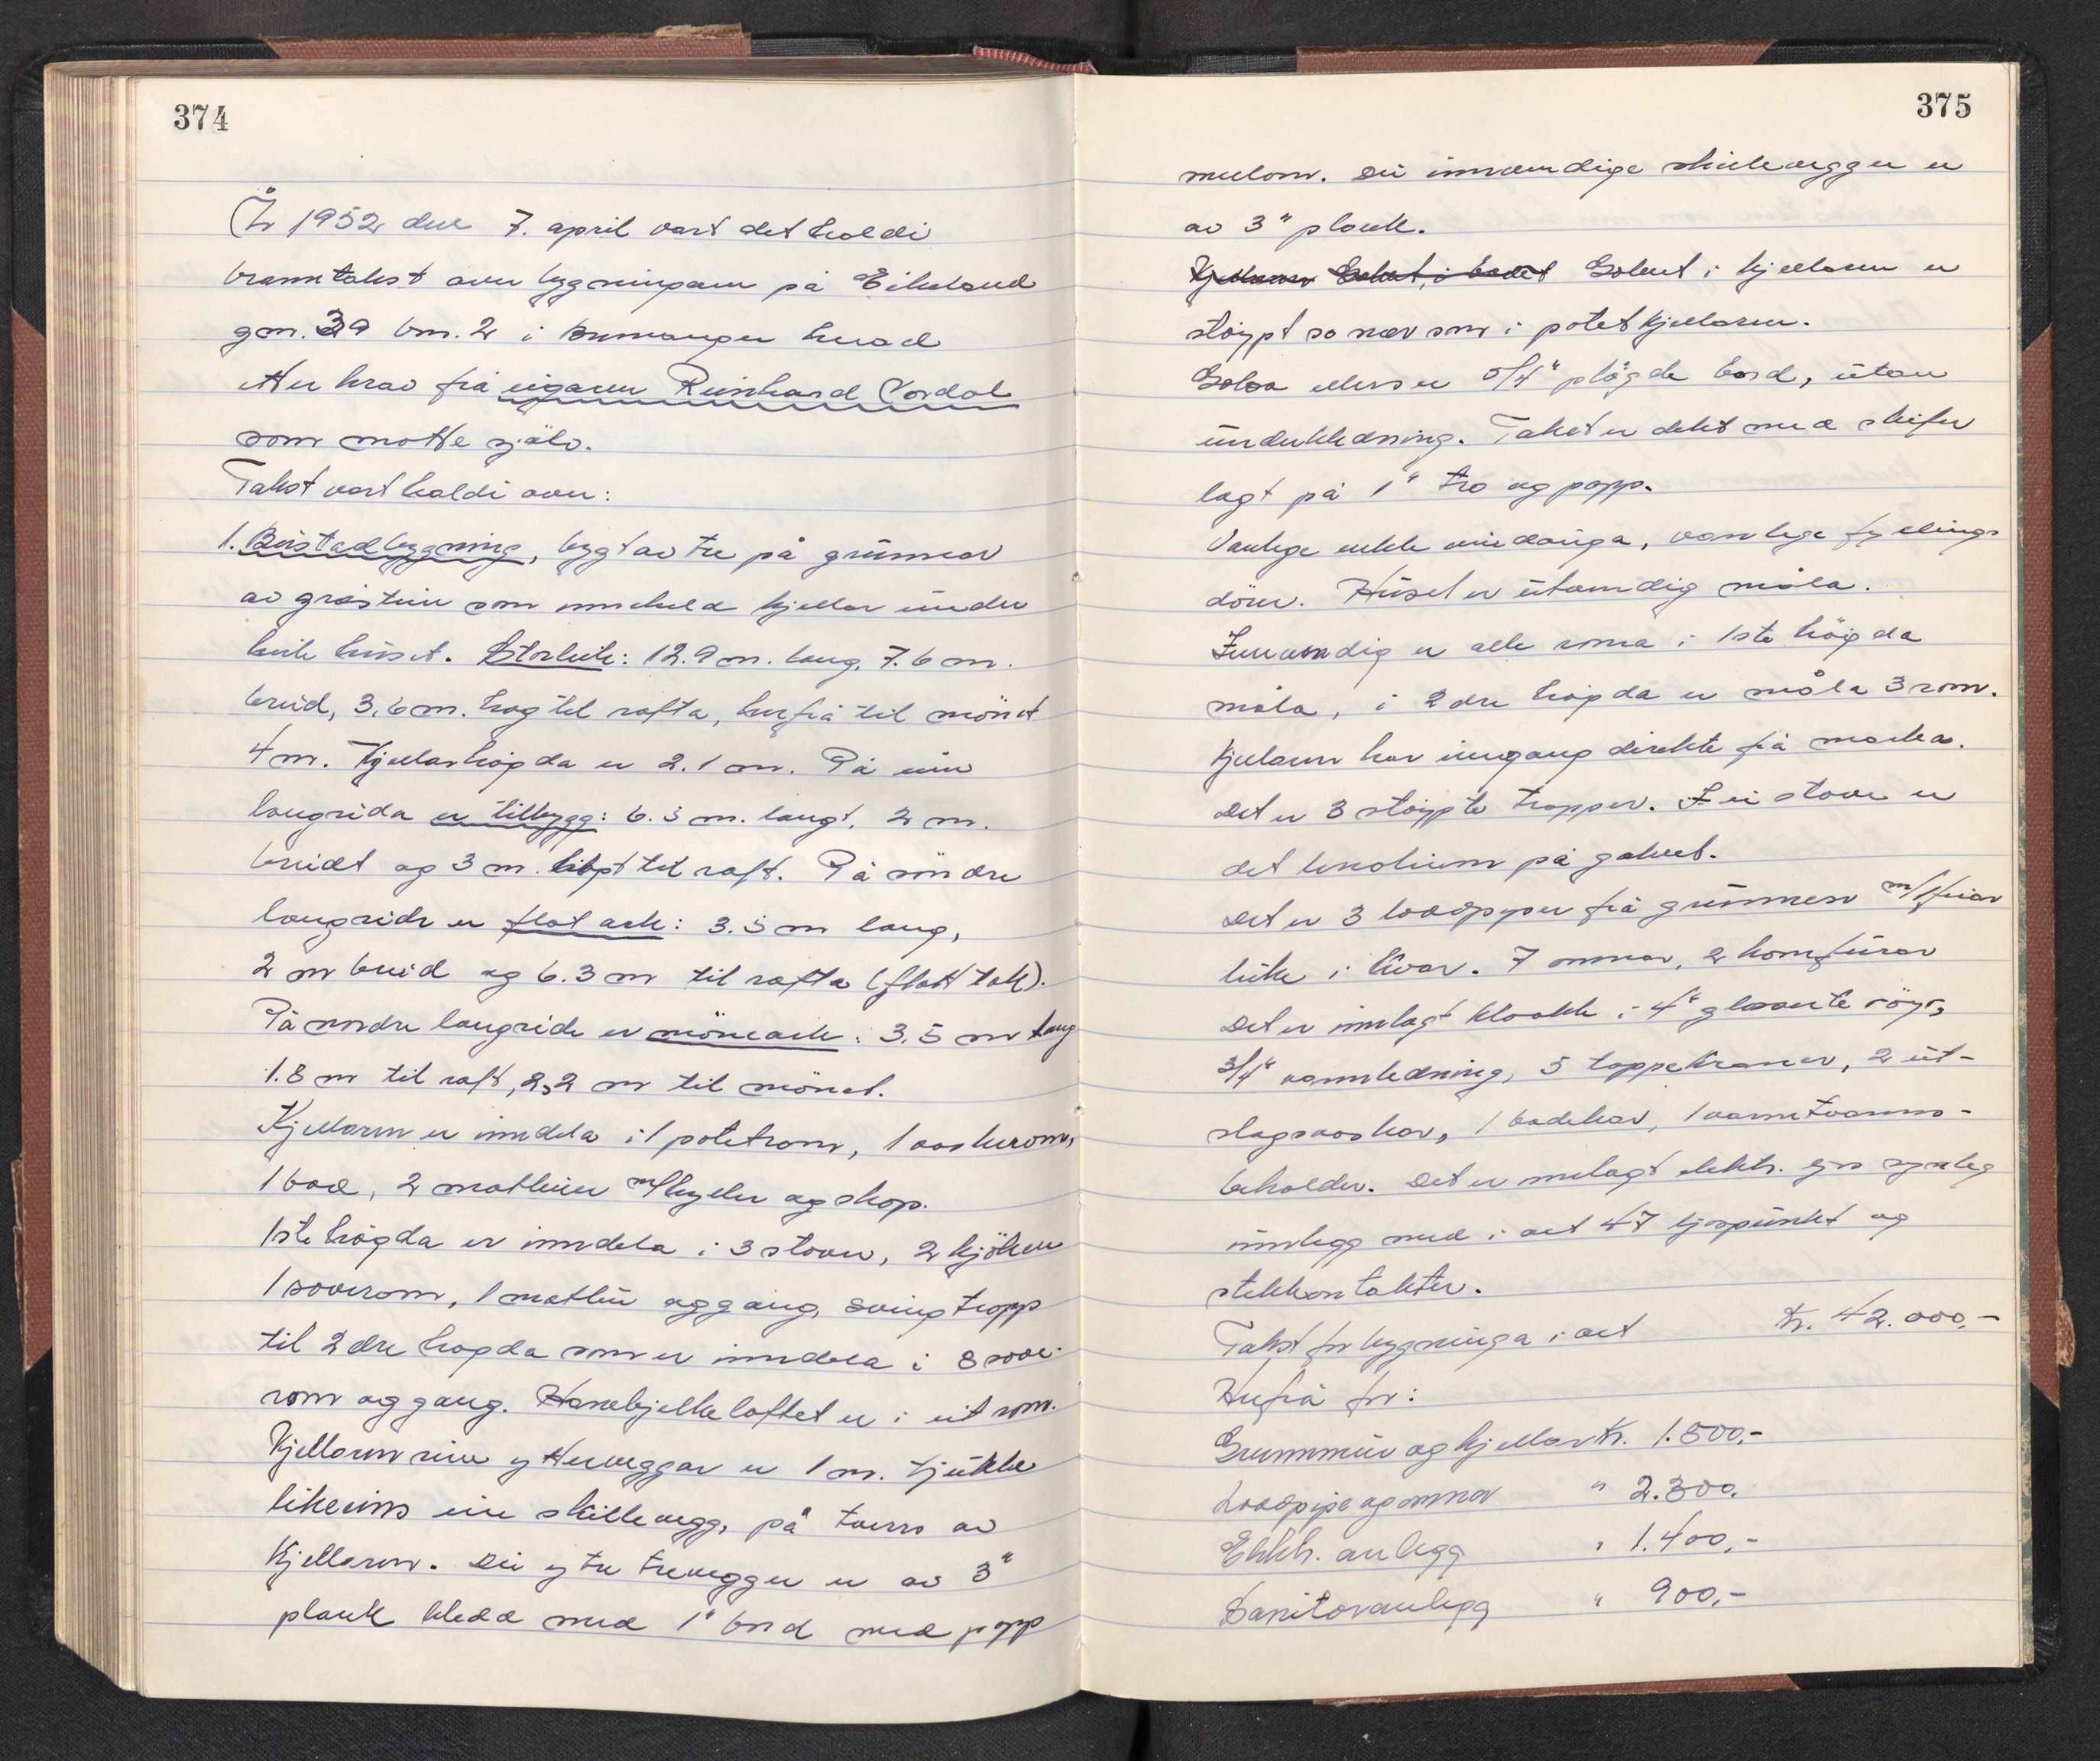 374
År 1952 den 7. april vart det haldi
branntakst over bygningane på Eikeland
gnr. 39 bnr. 2 i Bremanger herad
etter krav frå eigaren Reinhard Vordal
som møtte sjølv.
Takst vart haldi over:
1. Bustadbygning, bygt av tre på grunnmur
av gråstein som inneheld kjellar under
heile huset. Storleik: 12.9 m. lang, 7.6 m.
breid, 3.6 m. høg til rafta, herfrå til mønet
4 m. Kjellarhøgda er 2.1 m. På eine
langsida er tilbygg: 6.5 m. langt, 2 m.
breidt og 3 m. høgt til raft. På søndre
langside er flat ark: 3.5 m lang,
2 m breid og 6.3 m til rafta (flatt tak).
På nordre langside er møneark: 3.5 m lang
1.8 m til raft, 2,2 m til mønet.
Kjellaren er inndela i 1 potetrom, 1 vaskerom,
1 bad, 2 matbuer m/hyller og skap.
1ste høgda er inndela i 3 stover, 2 kjøken
1 soverom, 1 matbu og gang, svingtrapp
til 2dre høgda som er inndela i 8 sove-
rom og gang. Hanebjelkeloftet er i eit rom.
Kjellaren sine ytterveggar er 1 m. tjukke
likeeins ein skillevegg, på tvers av
Kjellaren. Dei ytre trevegger er av 3"
plank kledd med 1" bord med papp
375
mellom. Dei innvendige skilevegger er
av 3" plank.
Kjellaren Golvet, i badet Golvet i kjellaren er
støypt so nær som i potetkjellaren.
Golva ellers er 5/4" pløgde bord, utan
underkledning. Taket er dekt med skifer
lagt på 1" tro og papp.
Vanlege enkle vindauga, vanlege fyllings
dører. Huset er utvendig måla.
Innvendig er alle roma i 1ste høgda
måla, i 2dre høgda er måla 3 rom.
Kjellaren har inngang direkte frå marka.
Det er 3 støypte trapper. I ei stove er
det linolium på golvet.
Det er 3 loddpiper frå grunnen m/feiar
luke i kvar. 7 omnar, 2 komfurar
Det er innlagt kloakk i 4" glaserte røyr,
3/4" vannledning, 5 tappekraner, 2 ut-
slagsvaskar, 1 badekar, 1 varmtvanns-
beholder. Det er innlagt elektr. ljos synleg
innlegg med i alt 47 ljospunkt og
stikkontakter.
Takst for bygninga i alt Kr. 42.000.-
Herfrå for:
Grunnmur og kjellar Kr. 1.800.-
Loddpipe og omnar " 2.300.
Elektr. anlegg " 1.400.-
Sanitæranlegg " 900.-